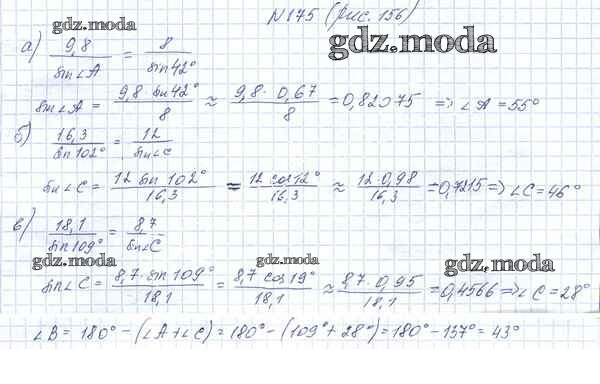 N175 (рис. 156)
gdz.moda
gdz.moda
а) 9,8 / sin∠A = 8 / sin42°
sin∠A = 9,8 · sin42° / 8 ≈ 9,8 · 0,67 / 8 = 0,82075 => ∠A = 55°
б) 16,3 / sin102° = 12 / sin∠C
sin∠C = 12 sin 102° / 16,3 = 12 cos12° / 16,3 ≈ 12 · 0,98 / 16,3 = 0,7215 => ∠C = 46°
в) 18,1 / sin109° = 8,7 / sin∠C
gdz.moda
gdz.moda
gdz.moda
sin∠C = 8,7 · sin 109° / 18,1 = 8,7 cos19° / 18,1 ≈ 8,7 · 0,95 / 18,1 = 0,4566 => ∠C = 28°
∠B = 180° - (∠A + ∠C) = 180° - (109° + 28°) = 180° - 137° = 43°